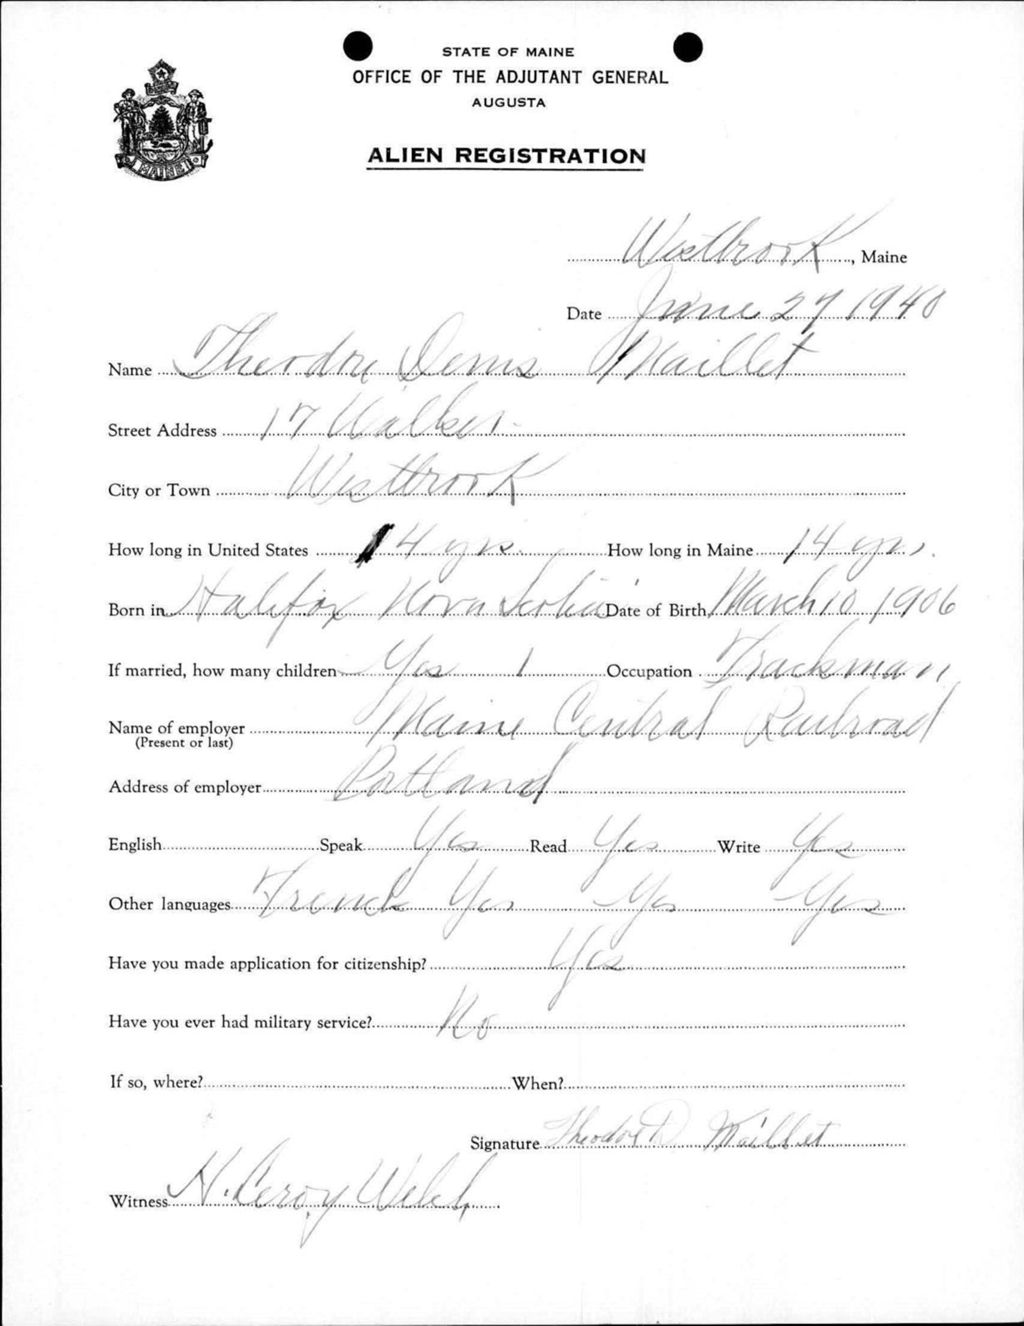 STATE OF MAINE
OFFICE OF THE ADJUTANT GENERAL
AUGUSTA
ALIEN REGISTRATION
MAINE
Westbrook, Maine
Date June 27 1940
Name Theodore Denis Maillet
Street Address 17 Walker
City or Town Westbrook
How long in United States 14 yrs. How long in Maine 14 yrs.
Born in Halifax Nova Scotia Date of Birth March 10 1906
If married, how many children Yes 1 Occupation Trackman
Name of employer Maine Central Railroad
(Present or last)
Address of employer Portland
English Speak Yes Read Yes Write Yes
Other languages French Yes Yes Yes
Have you made application for citizenship? Yes
Have you ever had military service? No
If so, where? When?
Signature Theodore D Maillet
Witness H. Leroy Welch